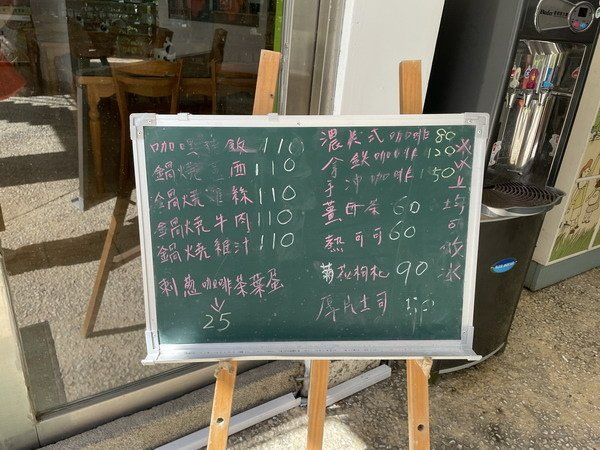 咖哩 飯 110
鍋燒 110
鍋燒雞絲 110
鍋燒牛肉 110
鍋燒雞汁 110
刺蔥咖啡茶葉蛋
↓
25
濃長式咖啡 80
拿鐵咖啡 120
手沖咖啡 150
薑母茶 60
熱可可 60
菊花枸杞 90
厚片土司
以上均可做冰